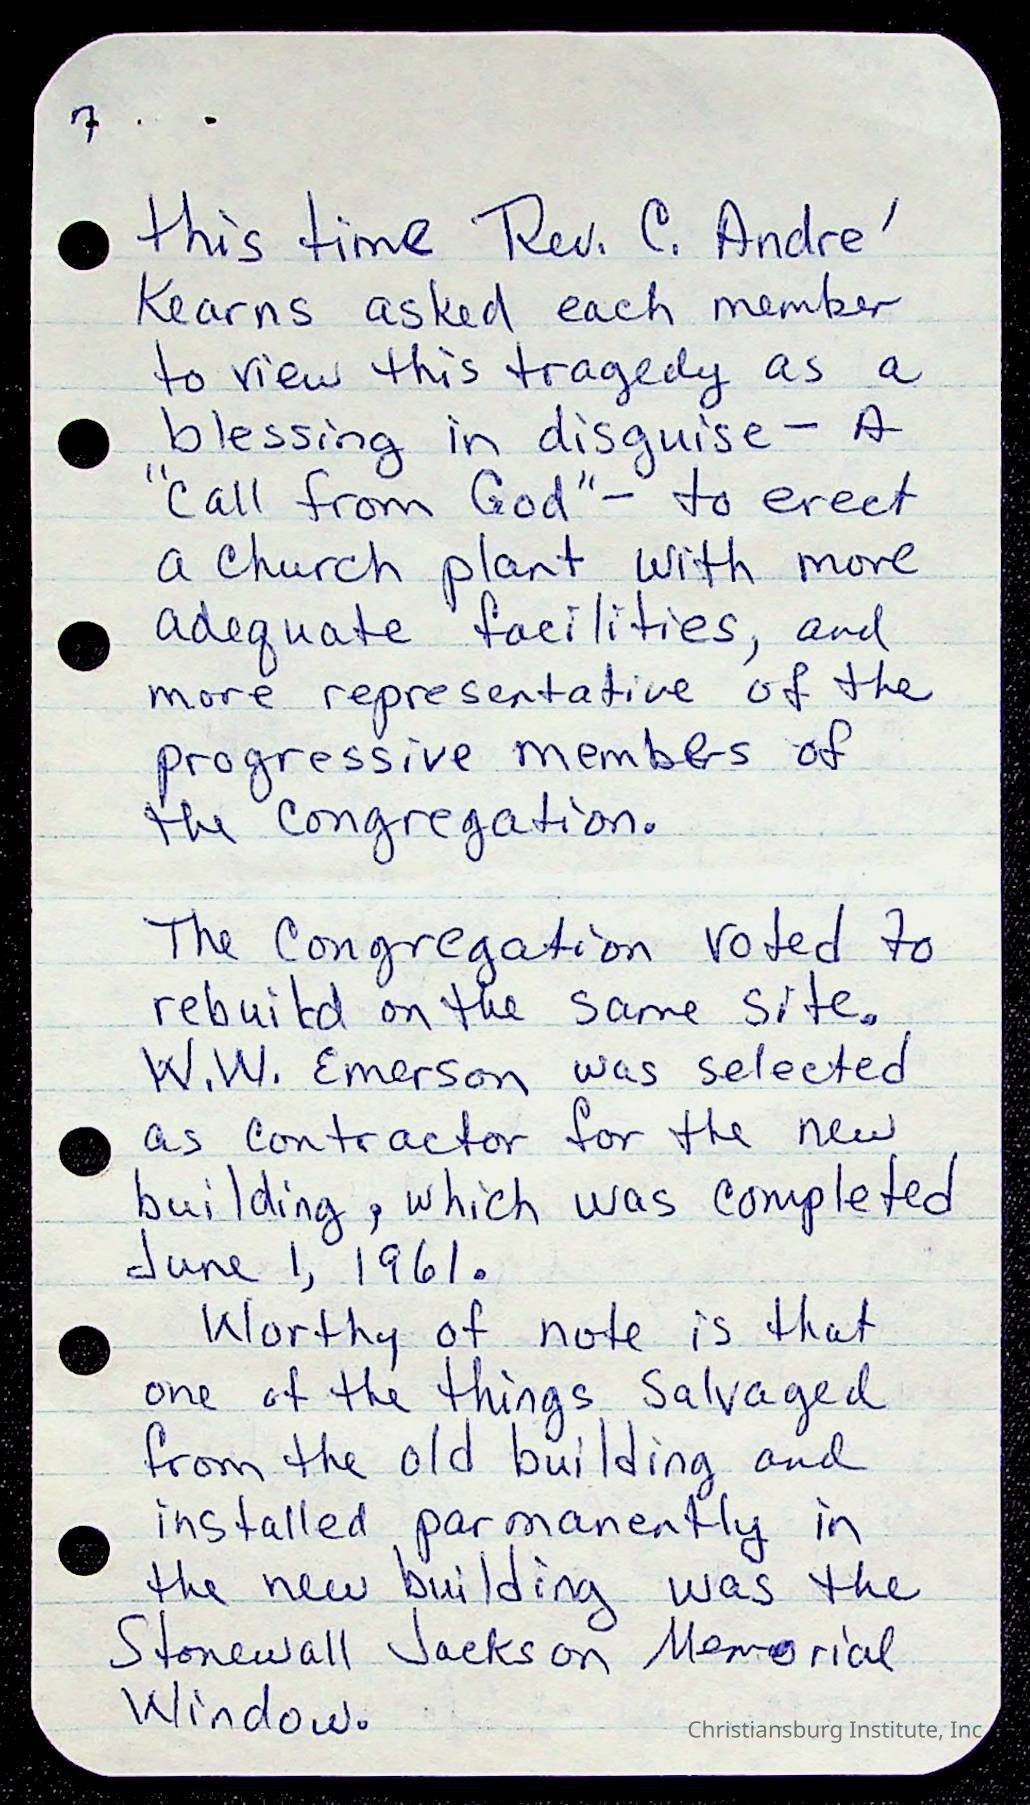 7
this time Rev. C. Andre'
Kearns asked each member
to view this tragedy as a
blessing in disguise - A
"Call from God" - to erect
a church plant with more
adequate facilities, and
more representative of the
progressive members of
the Congregation.
The Congregation voted to
rebuild on the same site.
W.W. Emerson was selected
as contractor for the new
building, which was completed
June 1, 1961.
Worthy of note is that
one of the things Salvaged
from the old building and
installed parmanently in
the new building was the
Stonewall Jackson Memorial
Window.
Christiansburg Institute, Inc